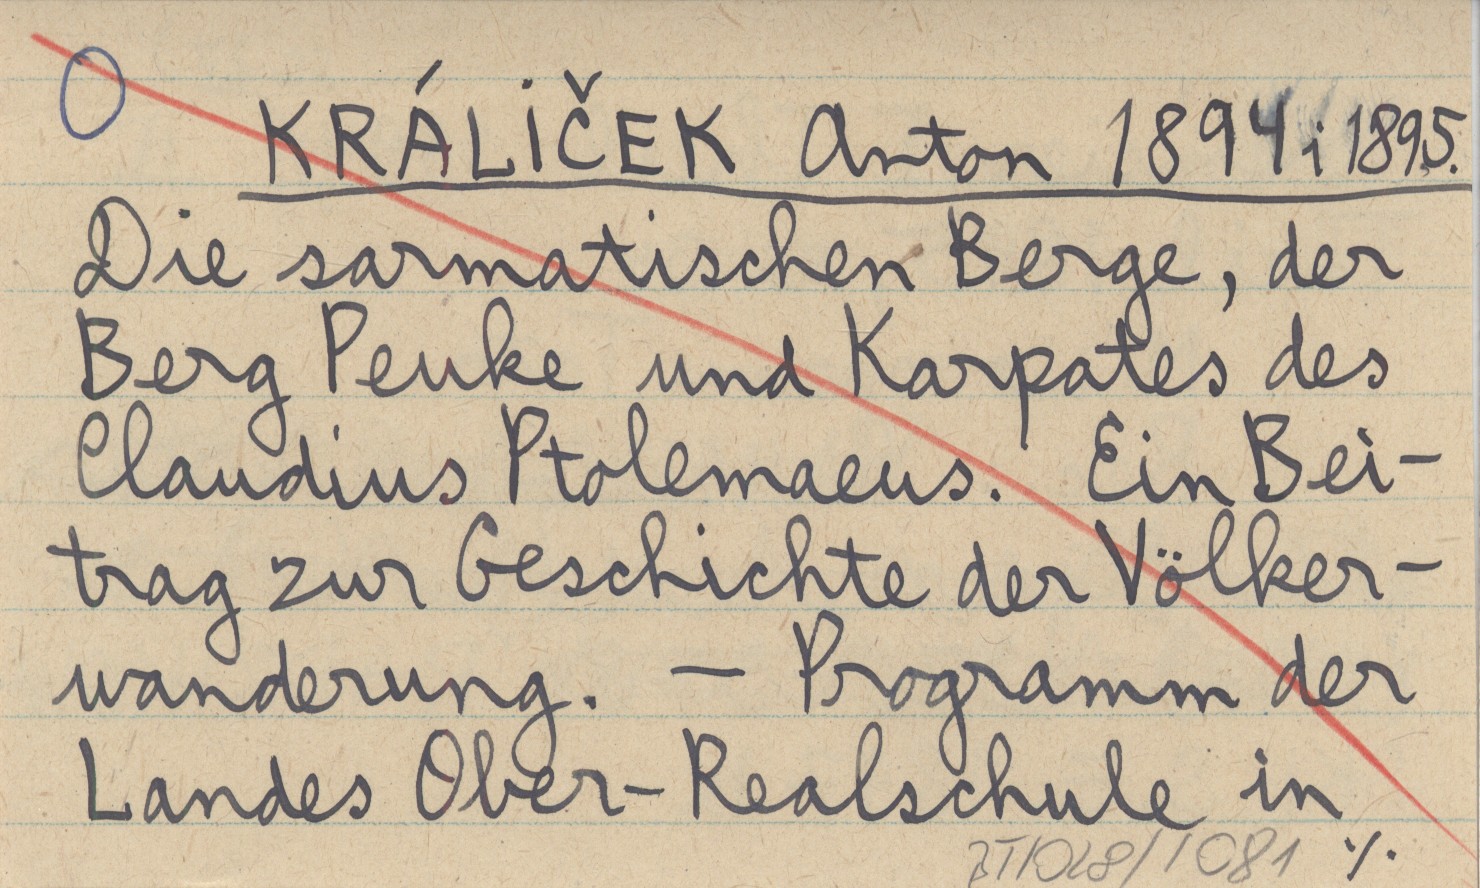 O
KRÁLIČEK Anton 1894 i 1895.
Die sarmatischen Berge, der
Berg Peuke und Karpates des
Claudius Ptolemaeus. Ein Bei-
trag zur Geschichte der Völker-
wanderung. – Programm der
Landes Ober-Realschule in
1081 ./.